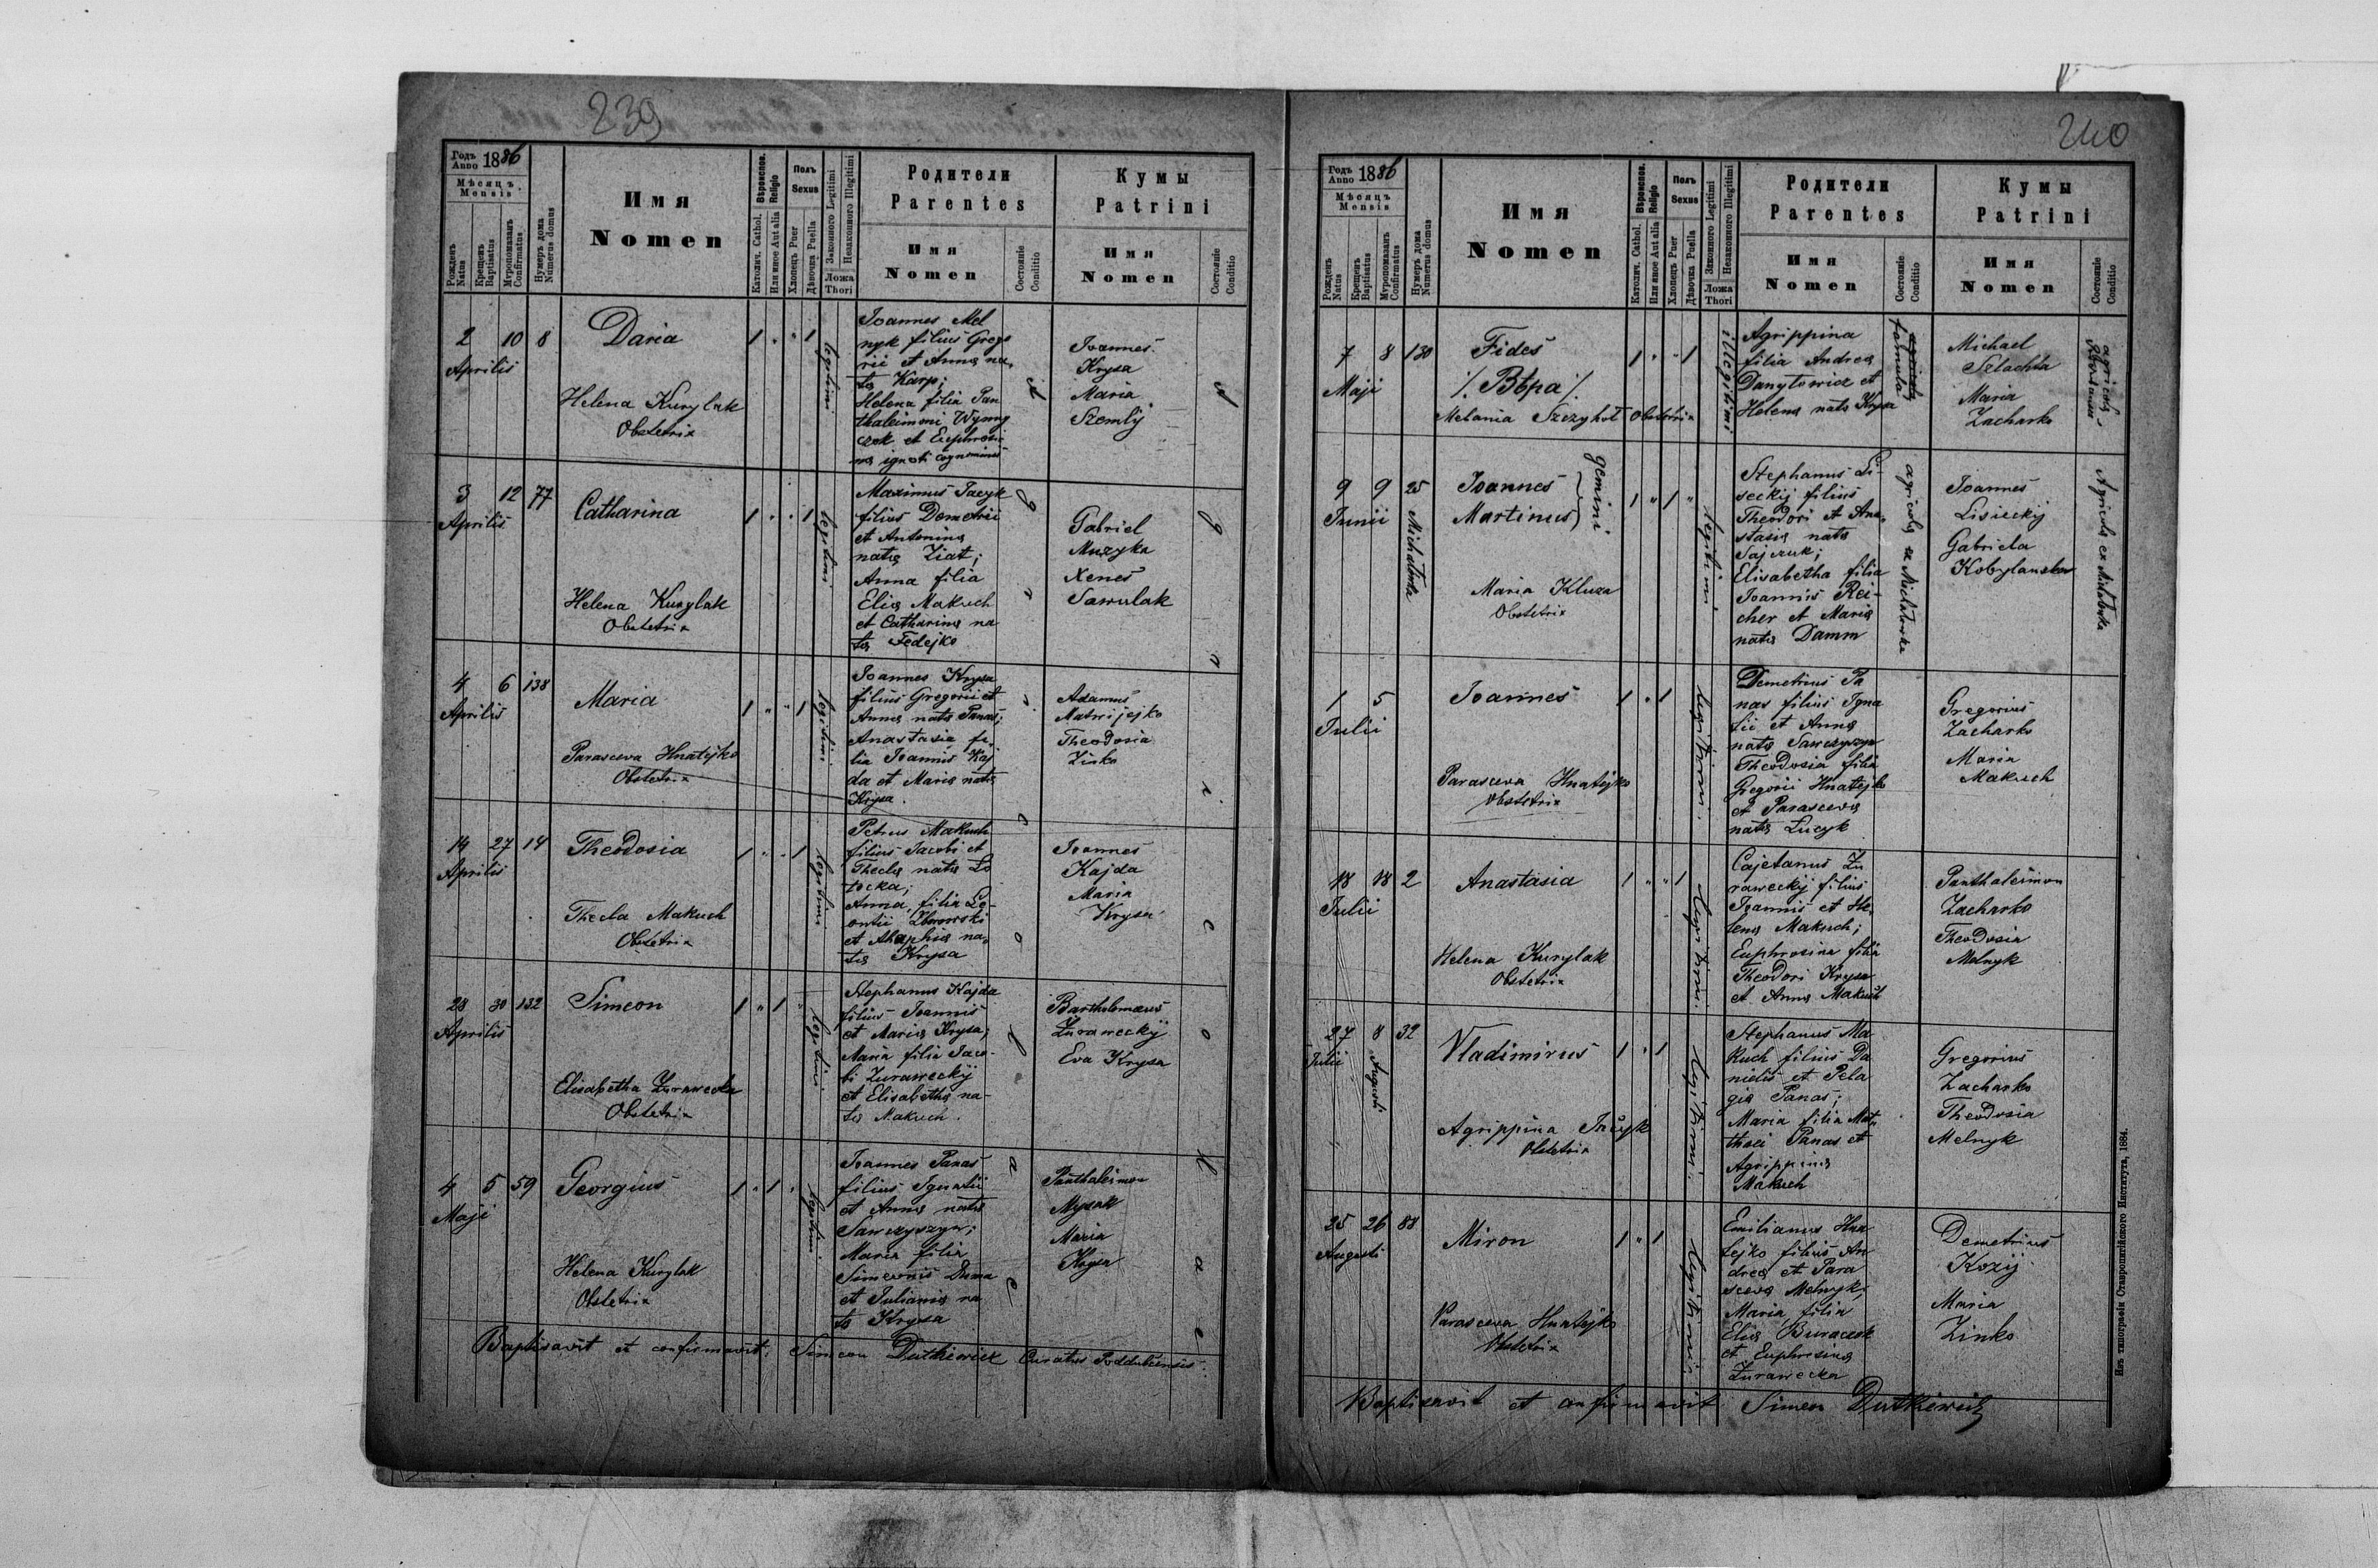 239
Годъ Anno 1886
Мѣсяцъ. Mensis
Рожденъ Natus
Крещенъ Baptisatus
Мѵропомазанъ Confirmatus
Нумеръ дома Numerus domus
Имя
Nomen
Вѣроиспов. Religio
Католич. Cathol.
Или иное Aut alia
Полъ Sexus
Хлопецъ Puer
Дѣвочка Puella
Законного Legitimi
Незаконного Illegitimi
Ложа Thori
Родители
Parentes
Имя
Nomen
Состояніе Conditio
Кумы
Patrini
Имя
Nomen
Состояніе Conditio
2 10 8
Aprilis
Daria
Helena Kurylak
Obstetrix
1 " " 1
legitimi
Joannes Mel
nyk filius Grego
rii et Anna na
ta Karp;
Helena filia Pan
thaleimoni Wynny
czok et Euphrosi
na ignoti cognominis
Joannes
Krysa
Maria
Szemlij
3 12 77
Aprilis
Catharina
Helena Kurylak
Obstetrix
1 " " 1
legitimi
Maximus Jacyk
filius Demetrii
et Antonina
nata Ziat;
Anna filia
Elia Makuch
et Catharina na
ta Fedejko
Gabriel
Muzyka
Xenes
Sawulak
4 6 138
Aprilis
Maria
Parasceva Hnatejko
Obstetrix
1 " " 1
legitimi
Joannes Krysa
filius Gregorii et
Anna nata Panas;
Anastasia fi
lia Joannis Kaj
da et Maria nata
Krysa.
Adamus
Matwijejko
Theodosia
Zinko
14 27 14
Aprilis
Theodosia
Thecla Makuch
Obstetrix
1 " " 1
legitimi
Petrus Makuch
filius Jacobi et
Thecla nata Lo
tocka;
Anna, filia Le-
ontii Zborowski
et Ahaphia na
ta Krysa
Joannes
Kajda
Maria
Krysa
28 30 132
Aprilis
Simeon
Elisabetha Żurawecka
Obstetrix
1 " 1 "
legitimi
Stephanus Kajda
filius Joannis
et Maria Krysa;
Maria filia Jaco-
bi Żuraweckij
et Elisabetha na-
ta Makuch.
Bartholomaeus
Żuraweckij
Eva Krysa
4 5 59
Maji
Georgius
Helena Kurylak
Obstetrix
1 " 1 "
legitimi
Joannes Panas
filius Ignatii
et Anna nata
Sawczyszyn;
Maria filia
Simeonis Duma
et Juliania na
ta Krysa
Panthaleimon
Mysak
Maria
Krysa
agricolae
agricolae
Baptisavit et confirmavit: Simeon Dutkiewicz Curatus Poddubcensis.
240
Годъ Anno 1886
Мѣсяцъ Mensis
Рожденъ Natus
Крещенъ Baptisatus
Мѵропомазанъ Confirmatus
Нумеръ дома Numerus domus
Имя
Nomen
Вѣроиспов. Religio
Католич. Cathol.
Или иное Aut alia
Полъ Sexus
Хлопецъ Puer
Дѣвочка Puella
Законного Legitimi
Незаконного Illegitimi
Ложа Thori
Родители
Parentes
Имя
Nomen
Состояніе Conditio
Кумы
Patrini
Имя
Nomen
Состояніе Conditio
7 8 130
Maji
Fides
/. Вѣра /.
Melania Szczyhoł Obstetrix
1 " " 1
illegitimi
Agrippina
filia Andrea
Danyłowicz et
Helena nata Krysa
famula
Michael
Szlachta
Maria
Zacharko
agricola
9 9 25
Junii
Michałówka
Joannes
Martinus
gemini
Maria Kluza
Obstetrix
1 " 1 "
legitimi
Stephanus Li-
seckij filius
Theodori et Ana
stasia nata
Sajczuk;
Elisabetha filia
Joannis Rei-
cher et Maria
nata Damm
agricola ex Michałówka
Joannes
Lisieckij
Gabriela
Kobylanska
Agricola ex Michałówka
1 5
Julii
Joannes
Parasceva Hnatejko
Obstetrix
1 " 1
legitimi.
Demetrius Pa
nas filius Igna
tii et Anna
nata Sawczyszyn
Theodosia filia
Gregorii Hnatejko
et Parasceva
nata Lucyk
Gregorius
Zacharko
Maria
Makuch
18 18 2
Julii
Anastasia
Helena Kurylak
Obstetrix
1 " " 1
legitimi.
Cajetanus Żu
raweckij filius
Joannis et He
lena Makuch;
Euphrosina filia
Theodori Krysa
et Anna Makuch
Panthaleimon
Zacharko
Theodosia
Melnyk
27 8 32
Julii
Augusti
Vladimirus
Agrippina Jacyk
Obstetrix
1 " 1
legitimi.
Stephanus Ma-
kuch filius Da
nielis et Pela
gia Panas;
Maria filia Mat
thaei Panas et
Agrippina
Makuch
Gregorius
Zacharko
Theodosia
Melnyk
25 26 88
Augusti
Miron
Parasceva Hnatejko
Obstetrix
1 " 1
legitimi
Emilianus Hna
tejko filius An
drea et Para
sceva Melnyk;
Maria filia
Elia Buraczok
et Euphrosina
Żurawecka
Demetrius
Kozij
Maria
Zinko
Baptisavit et confirmavit Simeon Dutkiewicz
Изъ типографіи Ставропигійского Института, 1884.